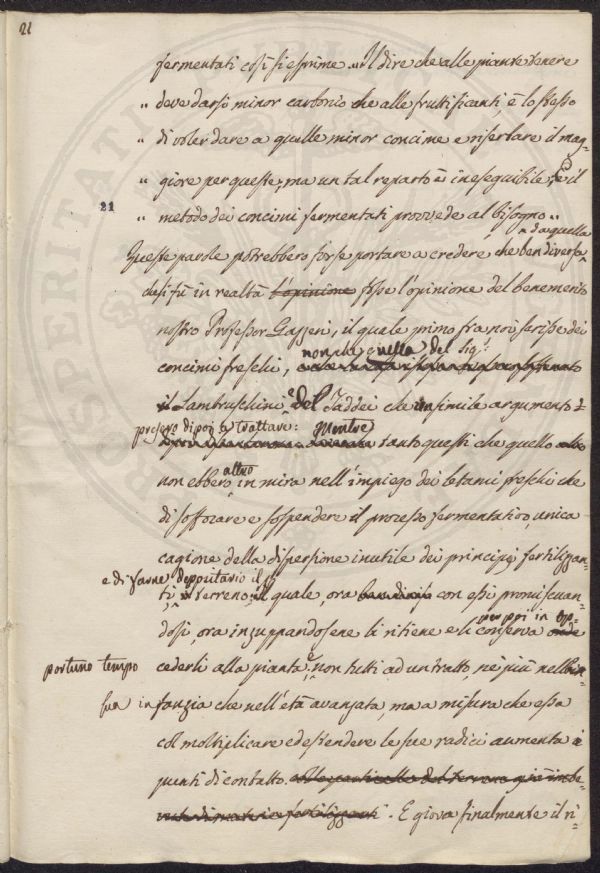 21
fermentati così si esprime „ Il dire che alle piante tenere
„ deve darsi minor carbonio che alle fruttificanti, è lo stesso
„ di voler dare a quelle minor concime e riserbare il mag-
„ giore per queste, ma un tal reparto è ineseguibile, e il
21
„ metodo dei concimi fermentati provvede al bisogno „
Queste parole potrebbero forse portare a credere, che ben diversa da quella
che si fù in realtà l'opinione fosse l'opinione del benemerito
nostro Professor Gazzeri, il quale primo fra noi scrisse dei
concimi freschi, non che quella del Sig.r
Lambruschini e del Taddei che in simile argomento
presero dipoi a trattare: Mentre tanto questi che quello
non ebbero altro in mira nell'impiego dei letami freschi che
di soffocare e sospendere il processo fermentativo, unica
cagione della dispersione inutile dei principj fertilizzan-
e di farne depositario il
ti, terreno, il quale, ora con essi promiscuan-
dosi, ora inzuppandosene li ritiene e li conserva per poi in op-
portuno tempo cederli alla pianta, e non tutti ad un tratto, nè più nella
sua infanzia che nell'età avanzata, ma a misura che essa
col moltiplicare ed estendere le sue radici aumenta i
punti di contatto. E giova finalmente il ri-